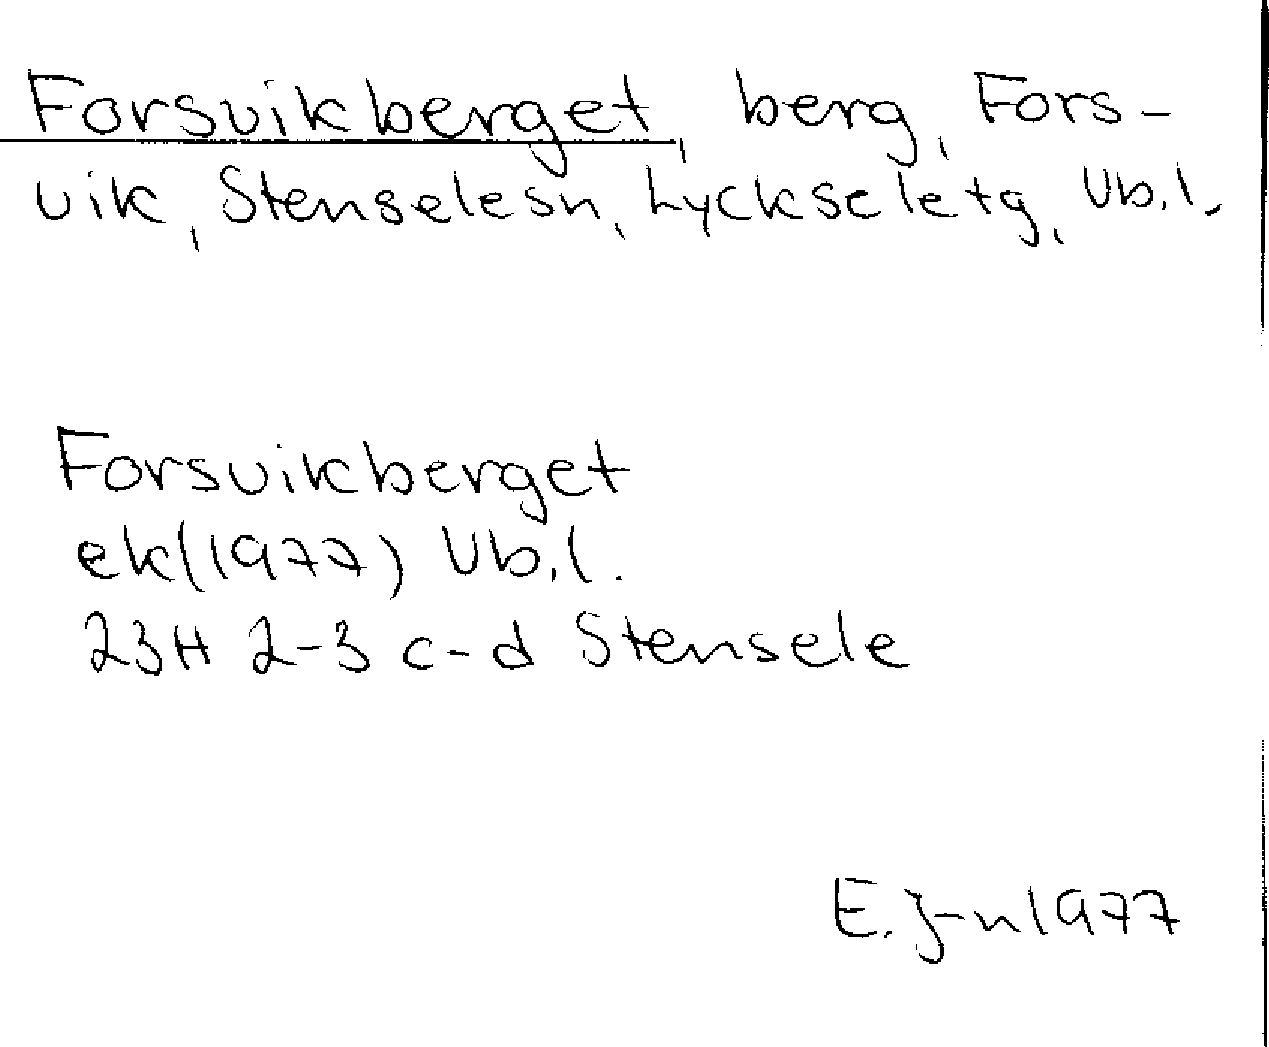 Forsvikberget, berg, Fors-
vik, Stenselesn, Lyckseletg, Vb.l.
Forsvikberget
ek(1977) Vb.l.
23H 2-3 c-d Stensele
E.J-n 1977